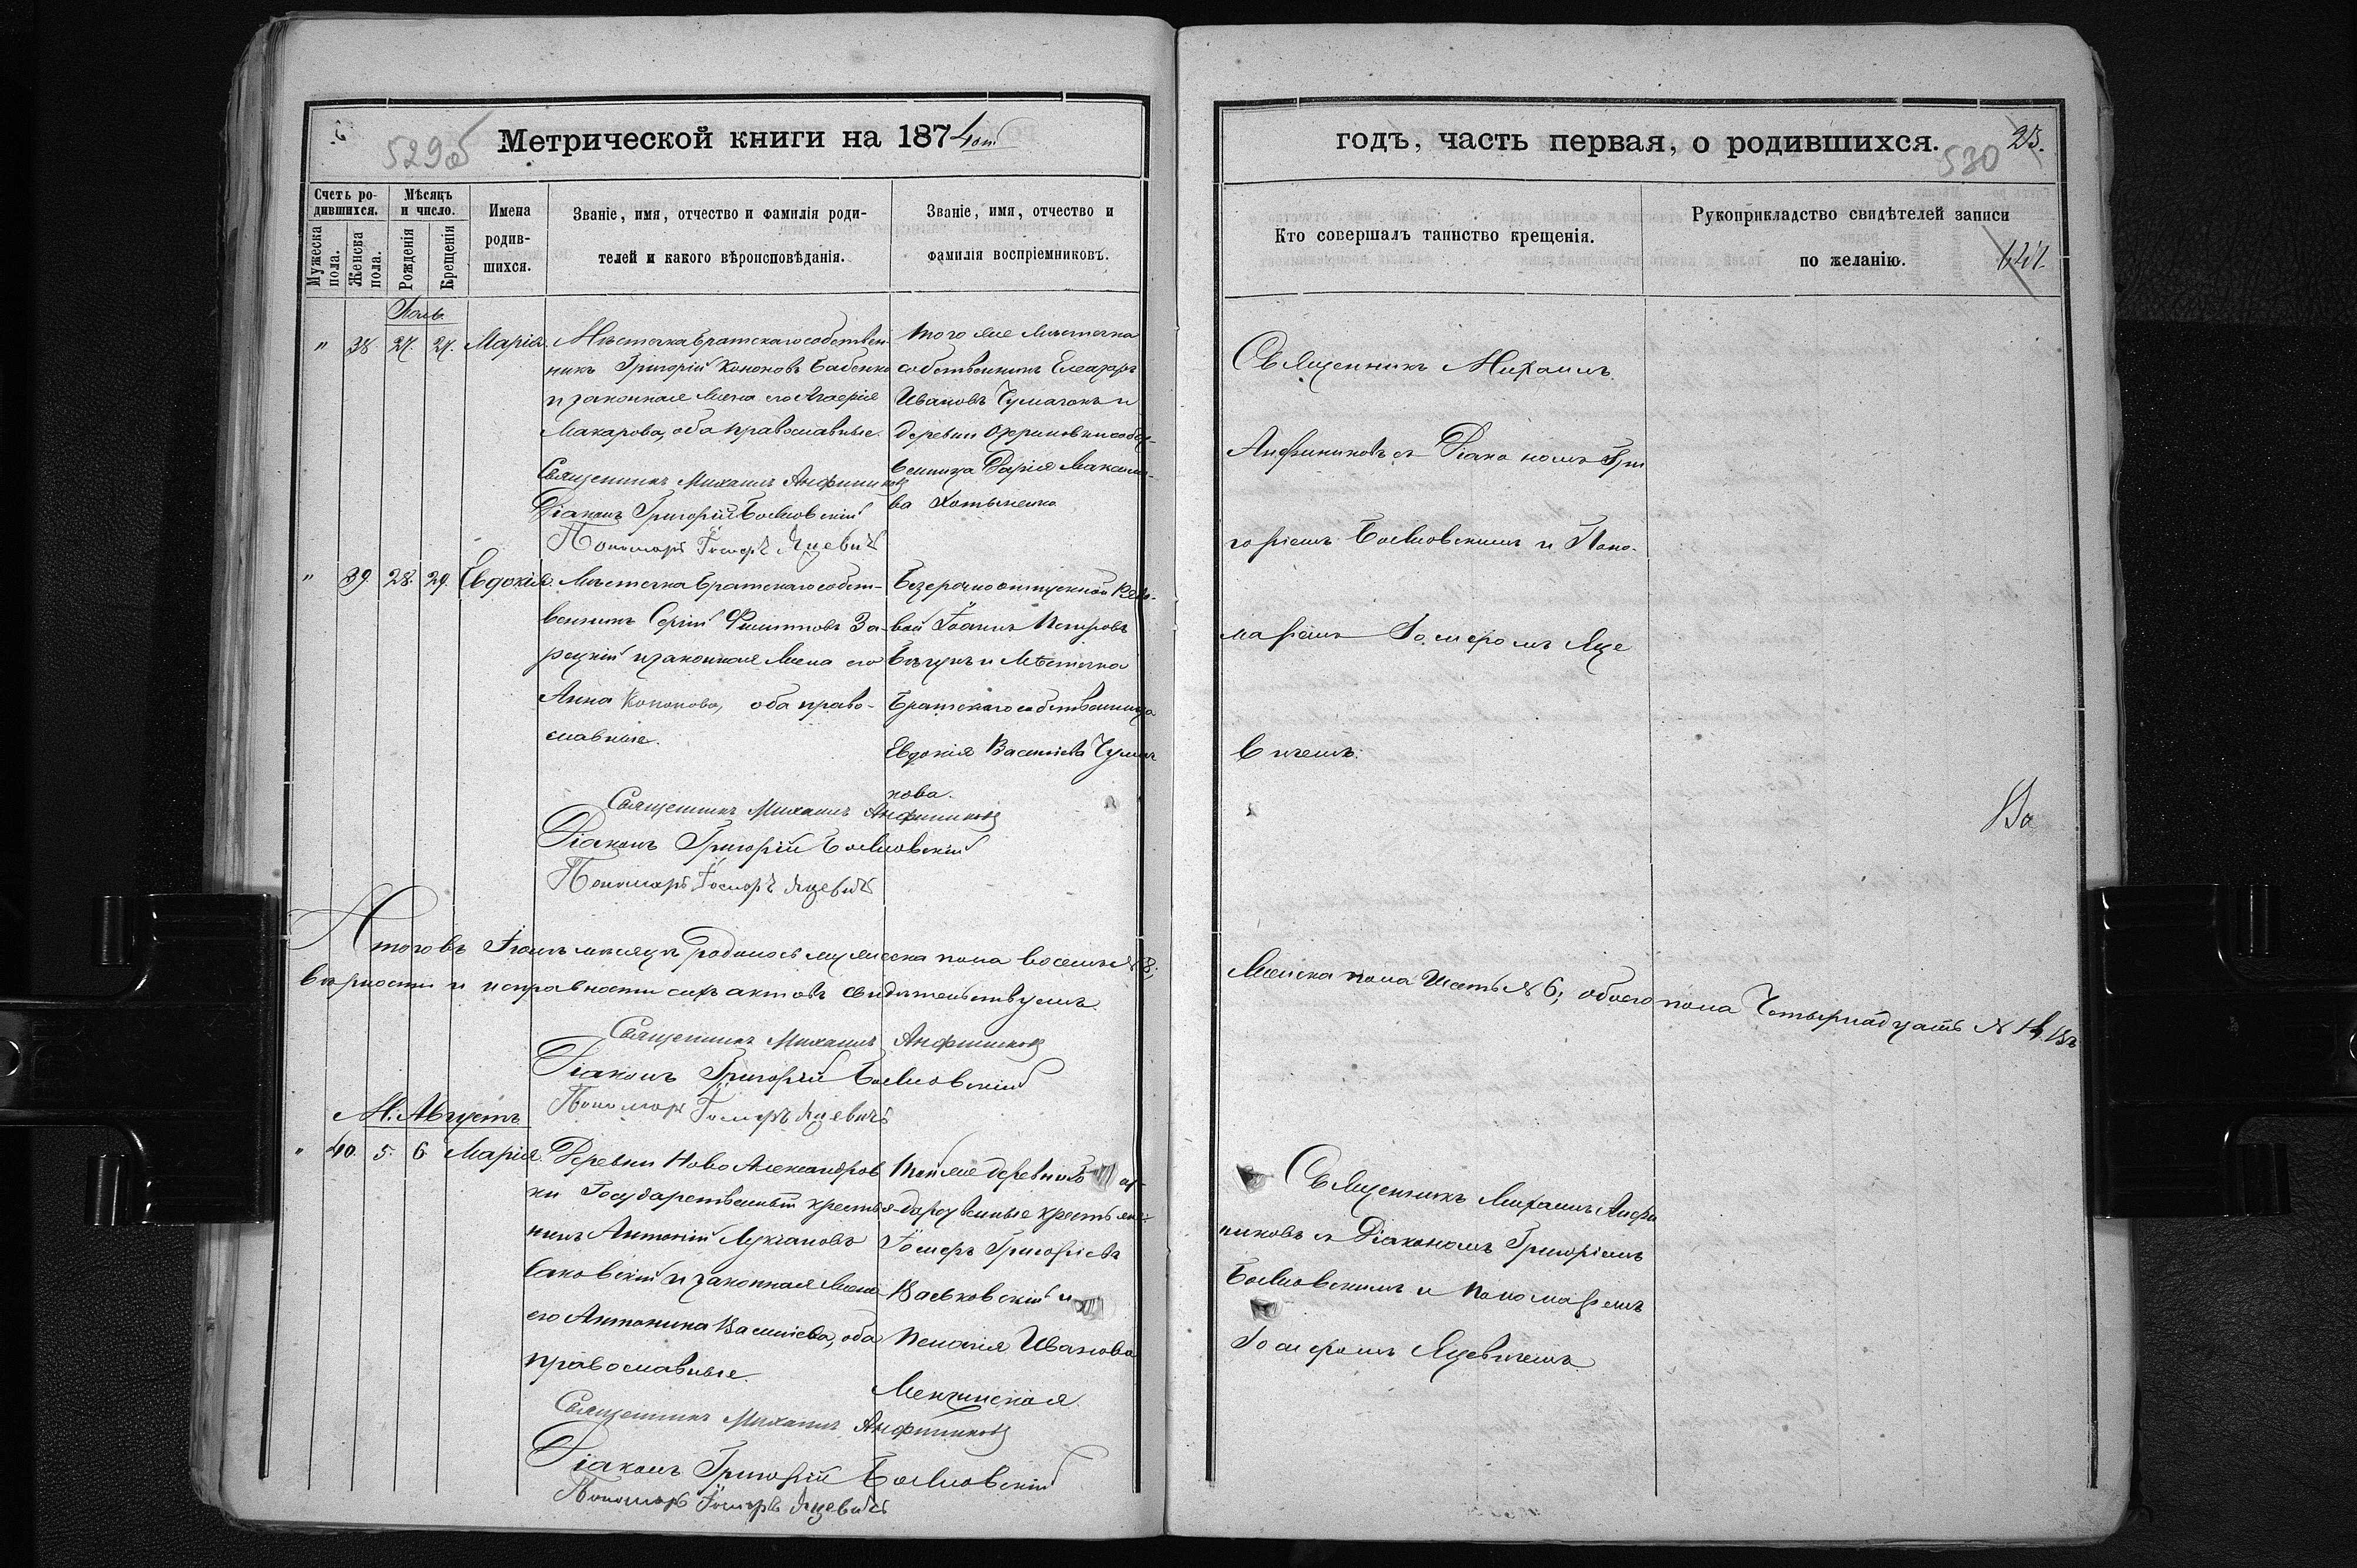 529об
Метрической книги на 1874 ой
Счетъ ро-
дившихся.
Мужеска
пола.
Женска
пола.
Мѣсяцъ
и число.
Рожденія
Крещенія
Имена
родив-
шихся.
Званіе, имя, отчество и фамилія роди-
телей и какого вѣроисповѣданія.
Званіе, имя, отчество и
фамилія воспріемниковъ.
Іюль
" 38 27. 27. Марія.
Мѣстечка Братскаго собствен-
никъ Григорій Кононовъ Бабенко
и законная жена его
Макарова, оба православные.
Священникъ Михаилъ Анфиниковъ
Діаконъ Григорій Божновскій
Пономарь Іосифъ Яцевичъ
того же мѣстечка
собственникъ Елеазаръ
Ивановъ Чумачокъ и
деревни
Дарія Максимо-
ва
" 39 28. 29. Евдокія.
Мѣстечка Братскаго собст-
венникъ Сергій Филипповъ За-
рецкій и законная жена его
Анна Кононова, оба право-
славные.
Священникъ Михаилъ Анфиниковъ
Діаконъ Григорій Божновскій
Пономарь Іосифъ Яцевичъ
Безсрочноотпускной Рядо-
вой Іоаннъ Петровъ
и Мѣстечка
Братскаго собственница
Евдокія Василіева Чумач
кова.
Итого въ Іюлѣ мѣсяцѣ родилось мужеска пола восемь № 8;
вѣрности и исправности сихъ актовъ свидѣтельствуемъ.
Священникъ Михаилъ Анфиниковъ
Діаконъ Григорій Божновскій
Пономарь Іосифъ Яцевичъ
М. Августъ
" 40. 5. 6 Марія.
Деревни Ново Александров
ки Государственный крестья-
нинъ Антоній Лукіановъ
Саковскій и законная жена
его Антонина Василіева, оба
православные.
Священникъ Михаилъ Анфиниковъ
Діаконъ Григорій Божновскій
Пономарь Іосифъ Яцевичъ
Той же деревни
дарственные крестьяне:
Іосифъ Григоріевъ
Васьковскій и
Пелагія Иванова
Менжинская.
годъ, часть первая, о родившихся.
530
23.
Кто совершалъ таинство крещенія.
Рукоприкладство свидѣтелей записи
по желанію.
Священникъ Михаилъ
Анфиниковъ съ Діакономъ Гри
горіемъ Божновскимъ и Поно-
маремъ Іосифомъ Яце
вичемъ.
Во
женска пола шесть № 6; обоего пола четырнадцать № 14. Въ
Священникъ Михаилъ Анфи
никовъ съ Діакономъ Григоріемъ
Божновскимъ и Пономаремъ
Іосифомъ Яцевичемъ